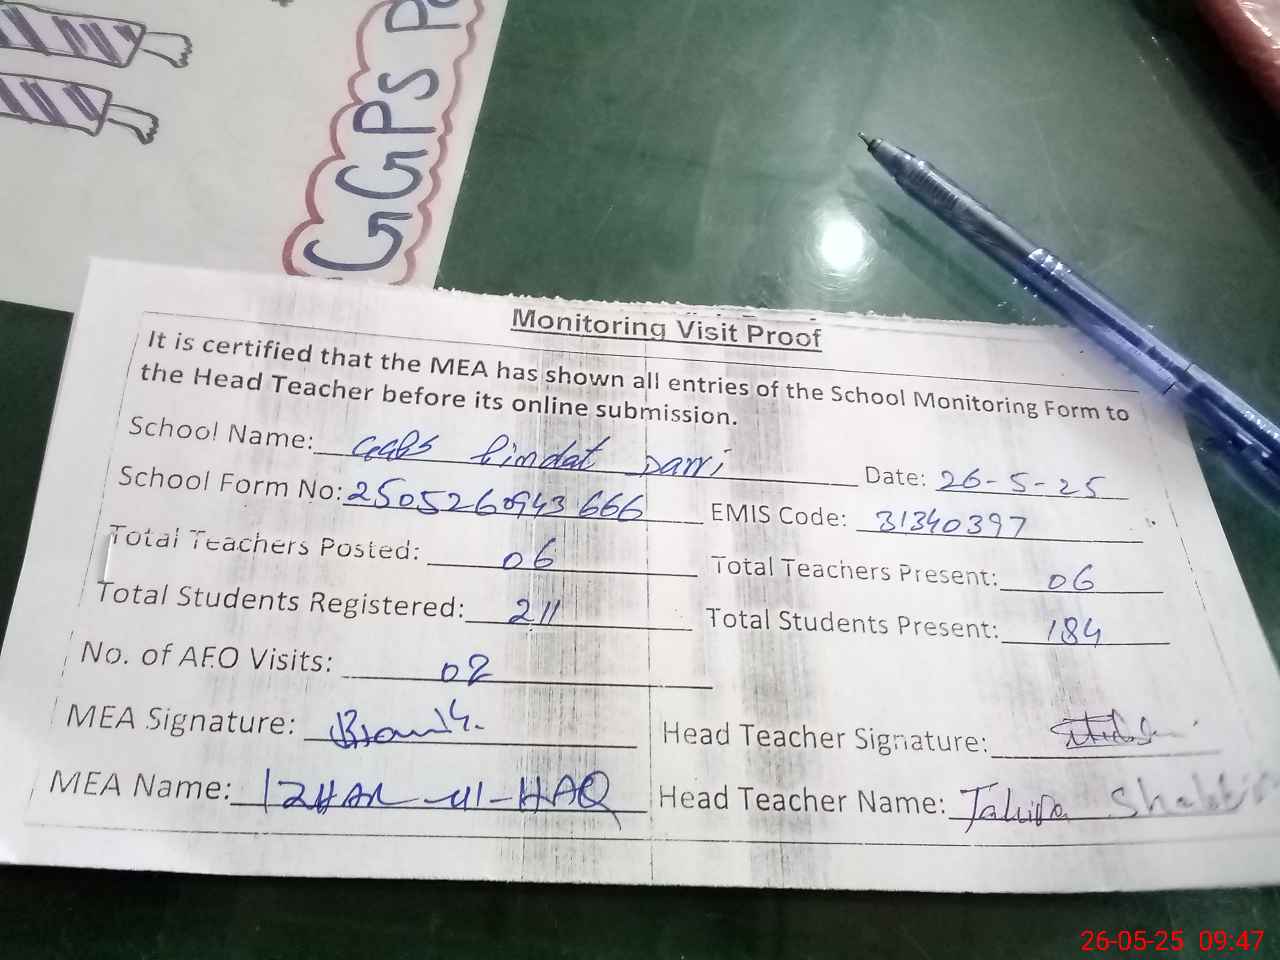 GGPS
Monitoring Visit Proof
It is certified that the MEA has shown all entries of the School Monitoring Form to
the Head Teacher before its online submission.
School Name: GGPS Pindat Darri Date: 26-5-25
School Form No: 2505260943666 EMIS Code: 31340397
Total Teachers Posted: 06 Total Teachers Present: 06
Total Students Registered: 211 Total Students Present: 184
No. of AEO Visits: 02
MEA Signature: Head Teacher Signature:
MEA Name: IZHAR-ul-HAQ Head Teacher Name: Tahira
26-05-25 09:47